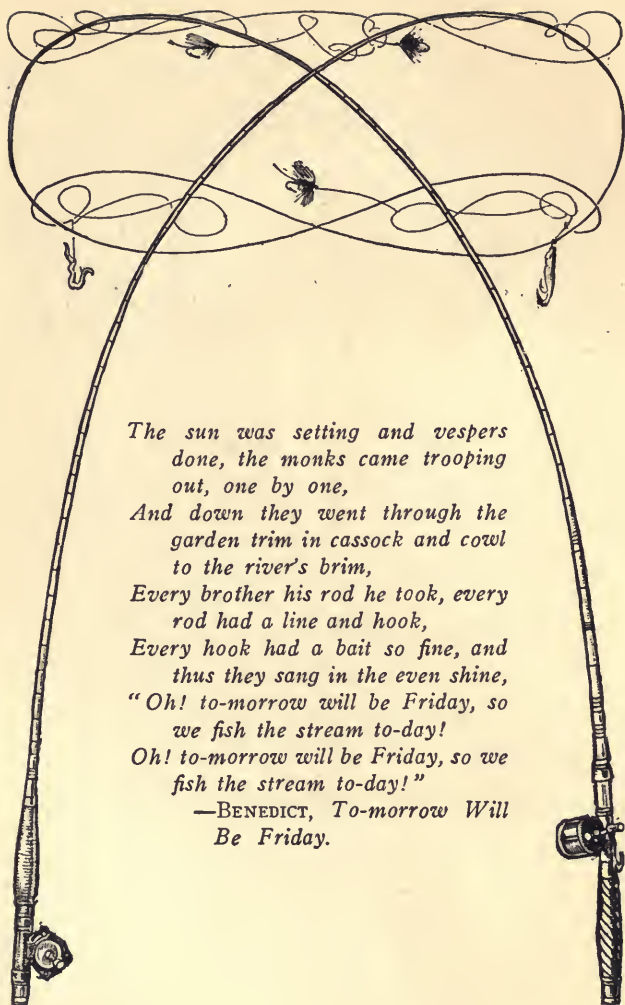 The sun was setting and vespers
done, the monks came trooping
out, one by one,
And down they went through the
garden trim in cassock and cowl
to the river's brim,
Every brother his rod he took, every
rod had a line and hook,
Every hook had a bait so fine, and
thus they sang in the even shine,
"Oh! to-morrow will be Friday, so
we fish the stream to-day!
Oh! to-morrow will be Friday, so we
fish the stream to-day!"
—BENEDICT, To-morrow Will
Be Friday.